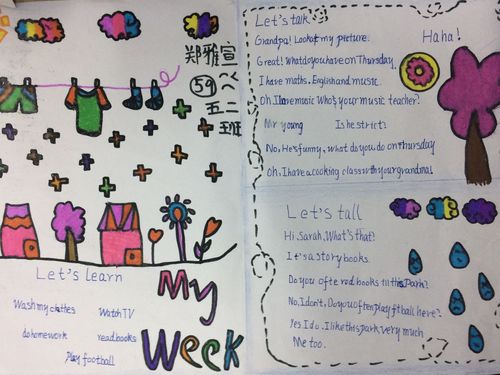 郑雅宣
59
五二班
Let's learn
Wash my clothes
Watch TV
do homework
read books
play football
My
Week
Let's talk
Haha!
Grandpa! Look at my picture.
Great! What do you have on Thursday,
I have maths. English and music.
Oh. I have music Who's your music teacher?
Mr young
Is he strict?
No, He's funny, what do you do on thursday
Oh, I have a cooking class with your grandma!
Let's tall
Hi, Sarah, What's that?
It's a story books.
Do you ofte red books in this Park?
No, I don't, Do you often play ftball here?
Yes I do. I like this park very much
Me too.